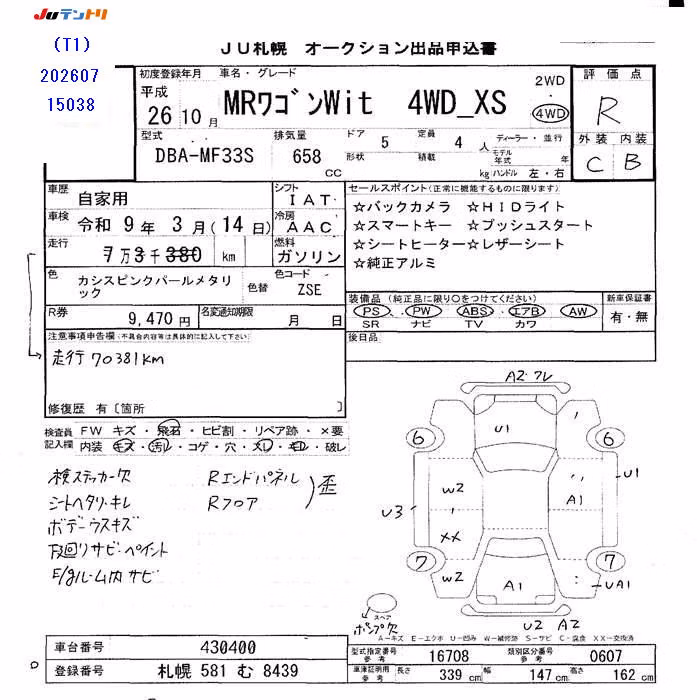 Juテントリ
(T1)
202607
15038
JU札幌 オークション出品申込書
初度登録年月 車名・グレード 2WD 評価点
平成 MRワゴンWit 4WD_XS 4WD R
26 10月
型式 排気量 ドア 5 定員 4人 ディーラー・並行 外装 内装
DBA-MF33S 658 CC 形状 積載 kg モデル年式 年 ハンドル 左・右 C B
車歴 自家用 シフト IAT セールスポイント(正常に機能するものに限ります)
車検 令和 9年 3月(14日) 冷房 AAC ☆バックカメラ ☆HIDライト
☆スマートキー ☆プッシュスタート
走行 7万3千380 km 燃料 ガソリン ☆シートヒーター☆レザーシート
☆純正アルミ
色 カシスピンクパールメタリック 色替 色コード ZSE
装備品 (純正品に限り○をつけてください) 新車保証書
R券 9,470円 名変通知期限 月 日 PS PW ABS エアB AW 有・無
SR ナビ TV カワ
注意事項申告欄(不具合内容等は具体的に記入して下さい) 後日品
走行70381km
修復歴 有〔箇所 〕
検査員記入欄 FW キズ・飛石・ヒビ割・リペア跡・×要
内装 キズ・汚レ・コゲ・穴・スレ・キレ・破レ
検ステッカー欠 Rエンドパネル
シートヘタリ・キレ Rフロア )歪
ボデーウスキズ
下回リサビ・ペイント
E/gルーム内サビ
A2 フレ
U1
6 6
W2 A1 U1
U3
XX
7 7
W2 A1 UA1
U2 A2
スペア
ポンプ欠
A-キズ E-エクボ U-凹み W-補修跡 S-サビ C-腐食 XX-交換済
車台番号 430400 型式指定番号 参考 16708 類別区分番号 参考 0607
登録番号 札幌 581 む 8439 車庫証明用 参考 長さ 339cm 幅 147cm 高さ 162cm